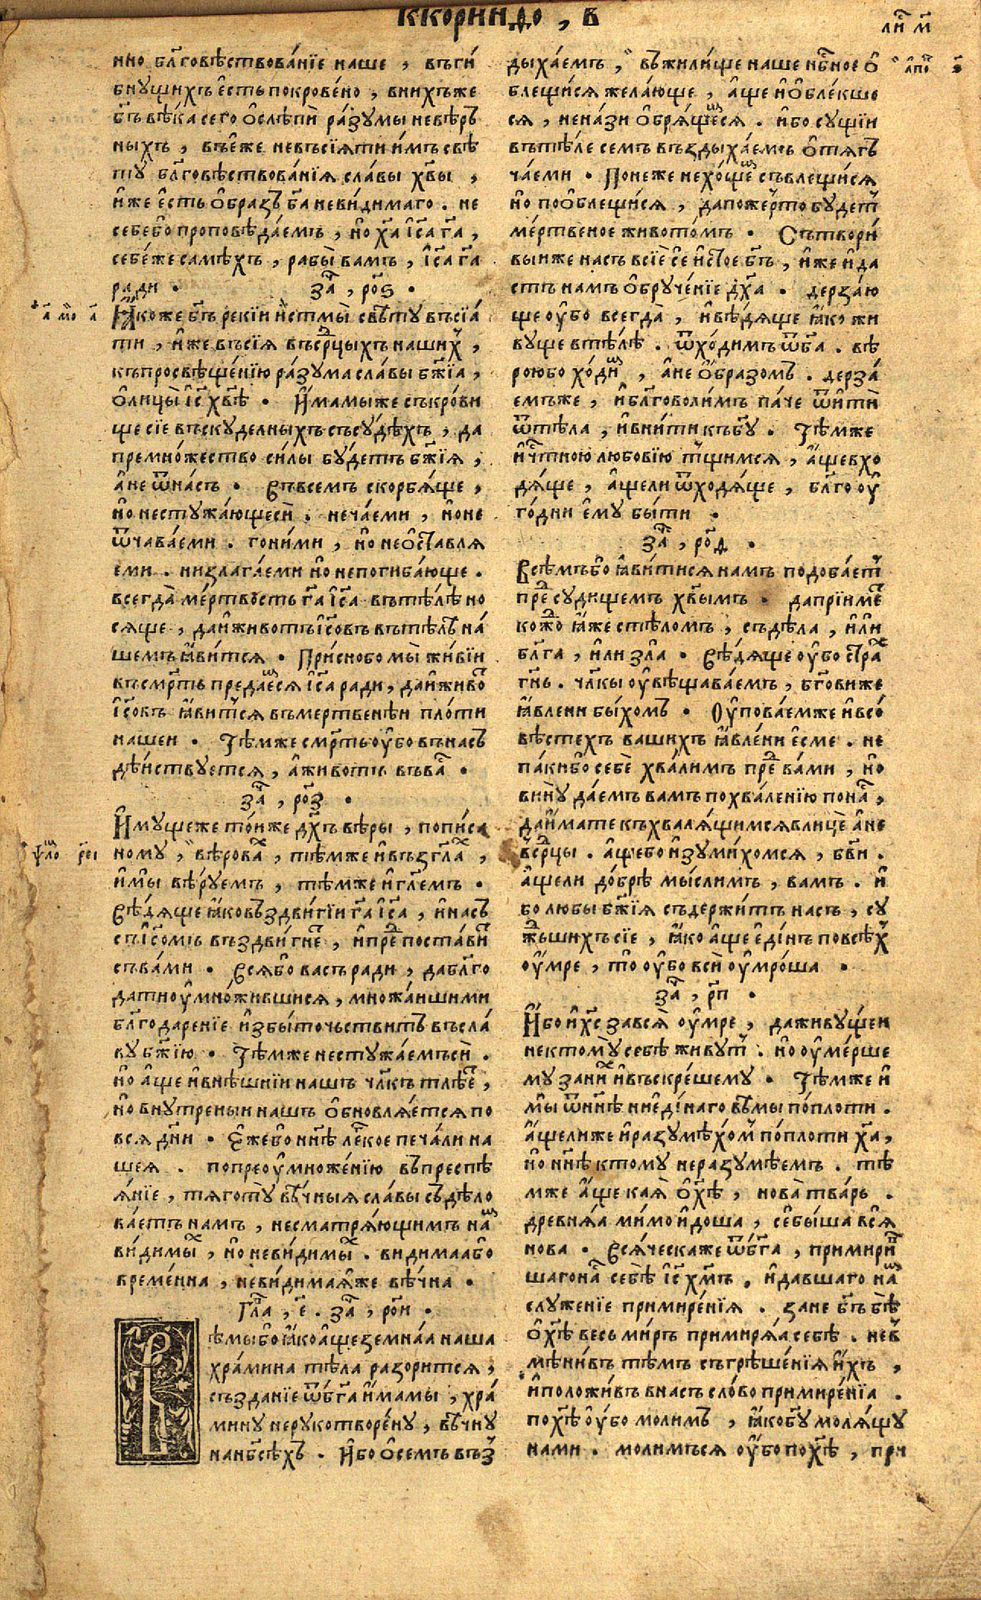 ккоринѳо , в
ли м
нно бл҃говѣствова́нїе наше , въги́
бнущихъ е́сть покрове́но , вни́хъже
бг҃ъ вѣ́ка сего ѡ҆слѣпи́ ра́зумы невѣ́рь
ныхъ , въе́же невъсїя́ти и҆́мъ свѣ́
ту бл҃говѣствова́нїя сла́вы хв҃ы ,
и҆́же е́сть о҆́бразъ бг҃а неви́димаго . не
себе́бо проповѣ́даемъ , но́ ха҃ і҆с҃а гд҃а ,
себе́же самѣ́хъ , рабы̀ вамъ , і҆с҃а гд҃а
ра́ди . за҃ , роѕ .
а҃ мо҃ а҃
Я҆́коже бг҃ъ реки́и и҆стмы̀ свѣту въсїа́
ти , и҆́же въсїя́ въср҃цыхъ нашихъ ,
къпросвѣще́нїю ра́зума сла́вы бж҃їа ,
ѡ҆лицы̀ і҆с҃ хв҃ѣ . И҆мамыже съкро́ви
ще сїе въскуде́лныхъ съсу́дѣхъ , да
премно́жество си́лы бу́детъ бж҃їя ,
а҆не ѿна́съ . Въвсемъ скорбя́ще ,
но нестужа́ющеси . неча́еми , но́не
ѿчава́еми . гони́ми , но нео҆ставля
еми . низлага́еми но непогиба́юще .
всегда̀ ме́ртвость гд҃а і҆с҃а въте́лѣ но
сяще , даи҆живо́тъ і҆с҃овъ въте́лѣ на́
шемъ я҆ви́тся . При́снобо мы̀ жи́вїи
въсмр҃ть предае́мся і҆с҃а ради , даи҆живо́т
і҆с҃овъ я҆ви́тся въмертвенѣи пло́ти
нашеи . Тѣ́мже смр҃ть ѹ҆́бо въна́съ
дѣ́иствуется , а҆живо́тъ въва́с .
за҃ , роз .
И҆мущеже то́иже дх҃ъ вѣ́ры , попи́са
ѱло҃ рєі
ному , вѣ́ровахъ , тѣ́мже и҆възгл҃ахъ ,
и҆мы̀ вѣ́руемъ , тѣ́мже и҆гл҃емъ .
Вѣ́дяще я҆ковъздви́гїи гд҃а і҆с҃а , и҆на́съ
съі҆с҃омъ въздви́гнет , и҆пред поста́вит
съва́ми . Всябо васъ ради , дабл҃го
датиѹ҆мно́жившися , множа́ишими
бл҃годаре́нїе и҆збы́точьствитъ въсла́
ву бж҃їю . Тѣ́мже нестужа́емъси .
но а҆́ще и҆внѣ́шнїи нашъ чл҃къ тлѣ́ет ,
но внутренїи нашъ ѡ҆бновля́ется по
вся дн҃и . Е҆́жебо ннѣ҃ ле́гкое печа́ли на
шея . попреѹ҆множе́нїю въпреспѣ
я́нїе , тяготу̀ вѣ́чныя сла́вы съдѣло
ва́етъ намъ , несматря́ющимъ нам
ви́димых , но неви́димых . видимаабо
вре́менна , неви́димаяже вѣ́чна .
Гла҃ , е҃ . за҃ , рои .
Вѣ́мыбо я҆коа҆́ще земна́а наша
хра́мина тѣ́ла разори́тся ,
създа́нїе ѿбг҃а и҆́мамы , хра́
мину нерукотворе́ну , вѣ́чну
нанбс҃ѣхъ . И҆́бо ѡ҆семъ възд
дыха́емъ , въжили́ще наше нбс҃ное ѡ҆
а҆по҃ ѕ҃
блещи́ся жела́юще , а҆́ще и҆ѡ҆бле́кше
ся , нена́зи ѡ҆бря́щемся . и҆́бо су́щїи
вътѣ́ле семъ въздыха́емъ ѡ҆тяг
ча́еми . Поне́же нехо́щем съвлещи́ся
но пооблещи́ся , дапоже́рто будет
ме́ртвеное живото́мъ . Сътвори́
выиже насъ всїе се и҆стое бг҃ъ , и҆́же и҆да
стъ намъ ѡ҆бруче́нїе дх҃а . дерза́ю
ще ѹ҆́бо всегда̀ , и҆вѣ́дяще я҆ко жи
вуще втѣ́лѣ . ѿхо́димъ ѿбг҃а . вѣ́
роюбо хо́дим , а҆не ѡ҆́бразомъ . дерза́
емъже , и҆бл҃говоли́мъ па́че ѿити́
ѿтѣ́ла , и҆вни́ти къбг҃у . Тѣ́мже
и҆чтною любо́вїю тщимся , а҆́щевхо
дя́ще , а҆́щели ѿходя́ще , бл҃го ѹ҆
го́дни е҆му быти .
за҃ , род .
Всѣ́мъбо я҆ви́тися намъ подоба́ет
пред суди́щемъ хв҃ымъ . дапрїи́мет
кождо я҆́же стѣ́ломъ , съдѣ́ла , и҆́ли
бл҃га , и҆́ли зла . Вѣ́дяще ѹ҆́бо страх
гн҃ь . чл҃кы ѹ҆вѣщава́емъ , бг҃овиже
я҆влени бы́хомъ . Ѹ҆пова́емже и҆всо́
вѣстехъ вашихъ я҆вле́ни е҆сме . не
па́кибо себѐ хва́лимъ пред ва́ми , но
вину̀ дае́мъ вамъ похвале́нїю понас ,
даи҆́мате къхваля́щимся влицѐ а҆не
вср҃цы . а҆́щебо и҆зуми́хомся , бг҃ви .
а҆́щели до́брѣ мы́слимъ , вамъ . и҆́
бо любы бж҃їя съдержи́тъ насъ , су
жьшихъ сїе , я҆ко а҆́ще е҆ди́нъ повсѣх
ѹ҆́мре , то ѹ҆́бо вси ѹ҆мро́ша .
за҃ , рп .
И҆́бо и҆ хс҃ зався̀ ѹ҆́мре , даживу́щеи
нектому̀ себѣ́ живут . но ѹ҆ме́рше
му зани́х и҆въскре́шему . Тѣ́мже и҆
мы̀ ѿннѣ҃ ниеди́наго вѣ́мы по́плоти .
а҆́щелиже и҆разумѣ́хом по́плоти ха҃ ,
но ннѣ҃ ктому неразумѣ́емъ . тѣ́
мже а҆́ще кая̀ ѡ҆хѣ҃ , но́ва тва́рь .
дре́вняа ми́мо и҆до́ша , се бы́ша вся̀
нова . Вся́ческаже ѿбг҃а , примири́в
шагонас себѣ̀ і҆с҃ хм҃ъ . и҆да́вшаго нам
служе́нїе примире́нїя . зане бг҃ъ бѣ̀
ѡ҆хѣ҃ весь ми́ръ примиря́я себѣ̀ . нев
мѣни́въ тѣ́мъ съгрѣше́нїя и҆́хъ ,
и҆положи́въ внасъ сло́во примире́нїа .
похѣ҃ ѹ҆́бо мо́лимъ , я҆кобг҃у моля́щу
нами . мо́лимъся ѹ҆́бо похѣ҃ , при